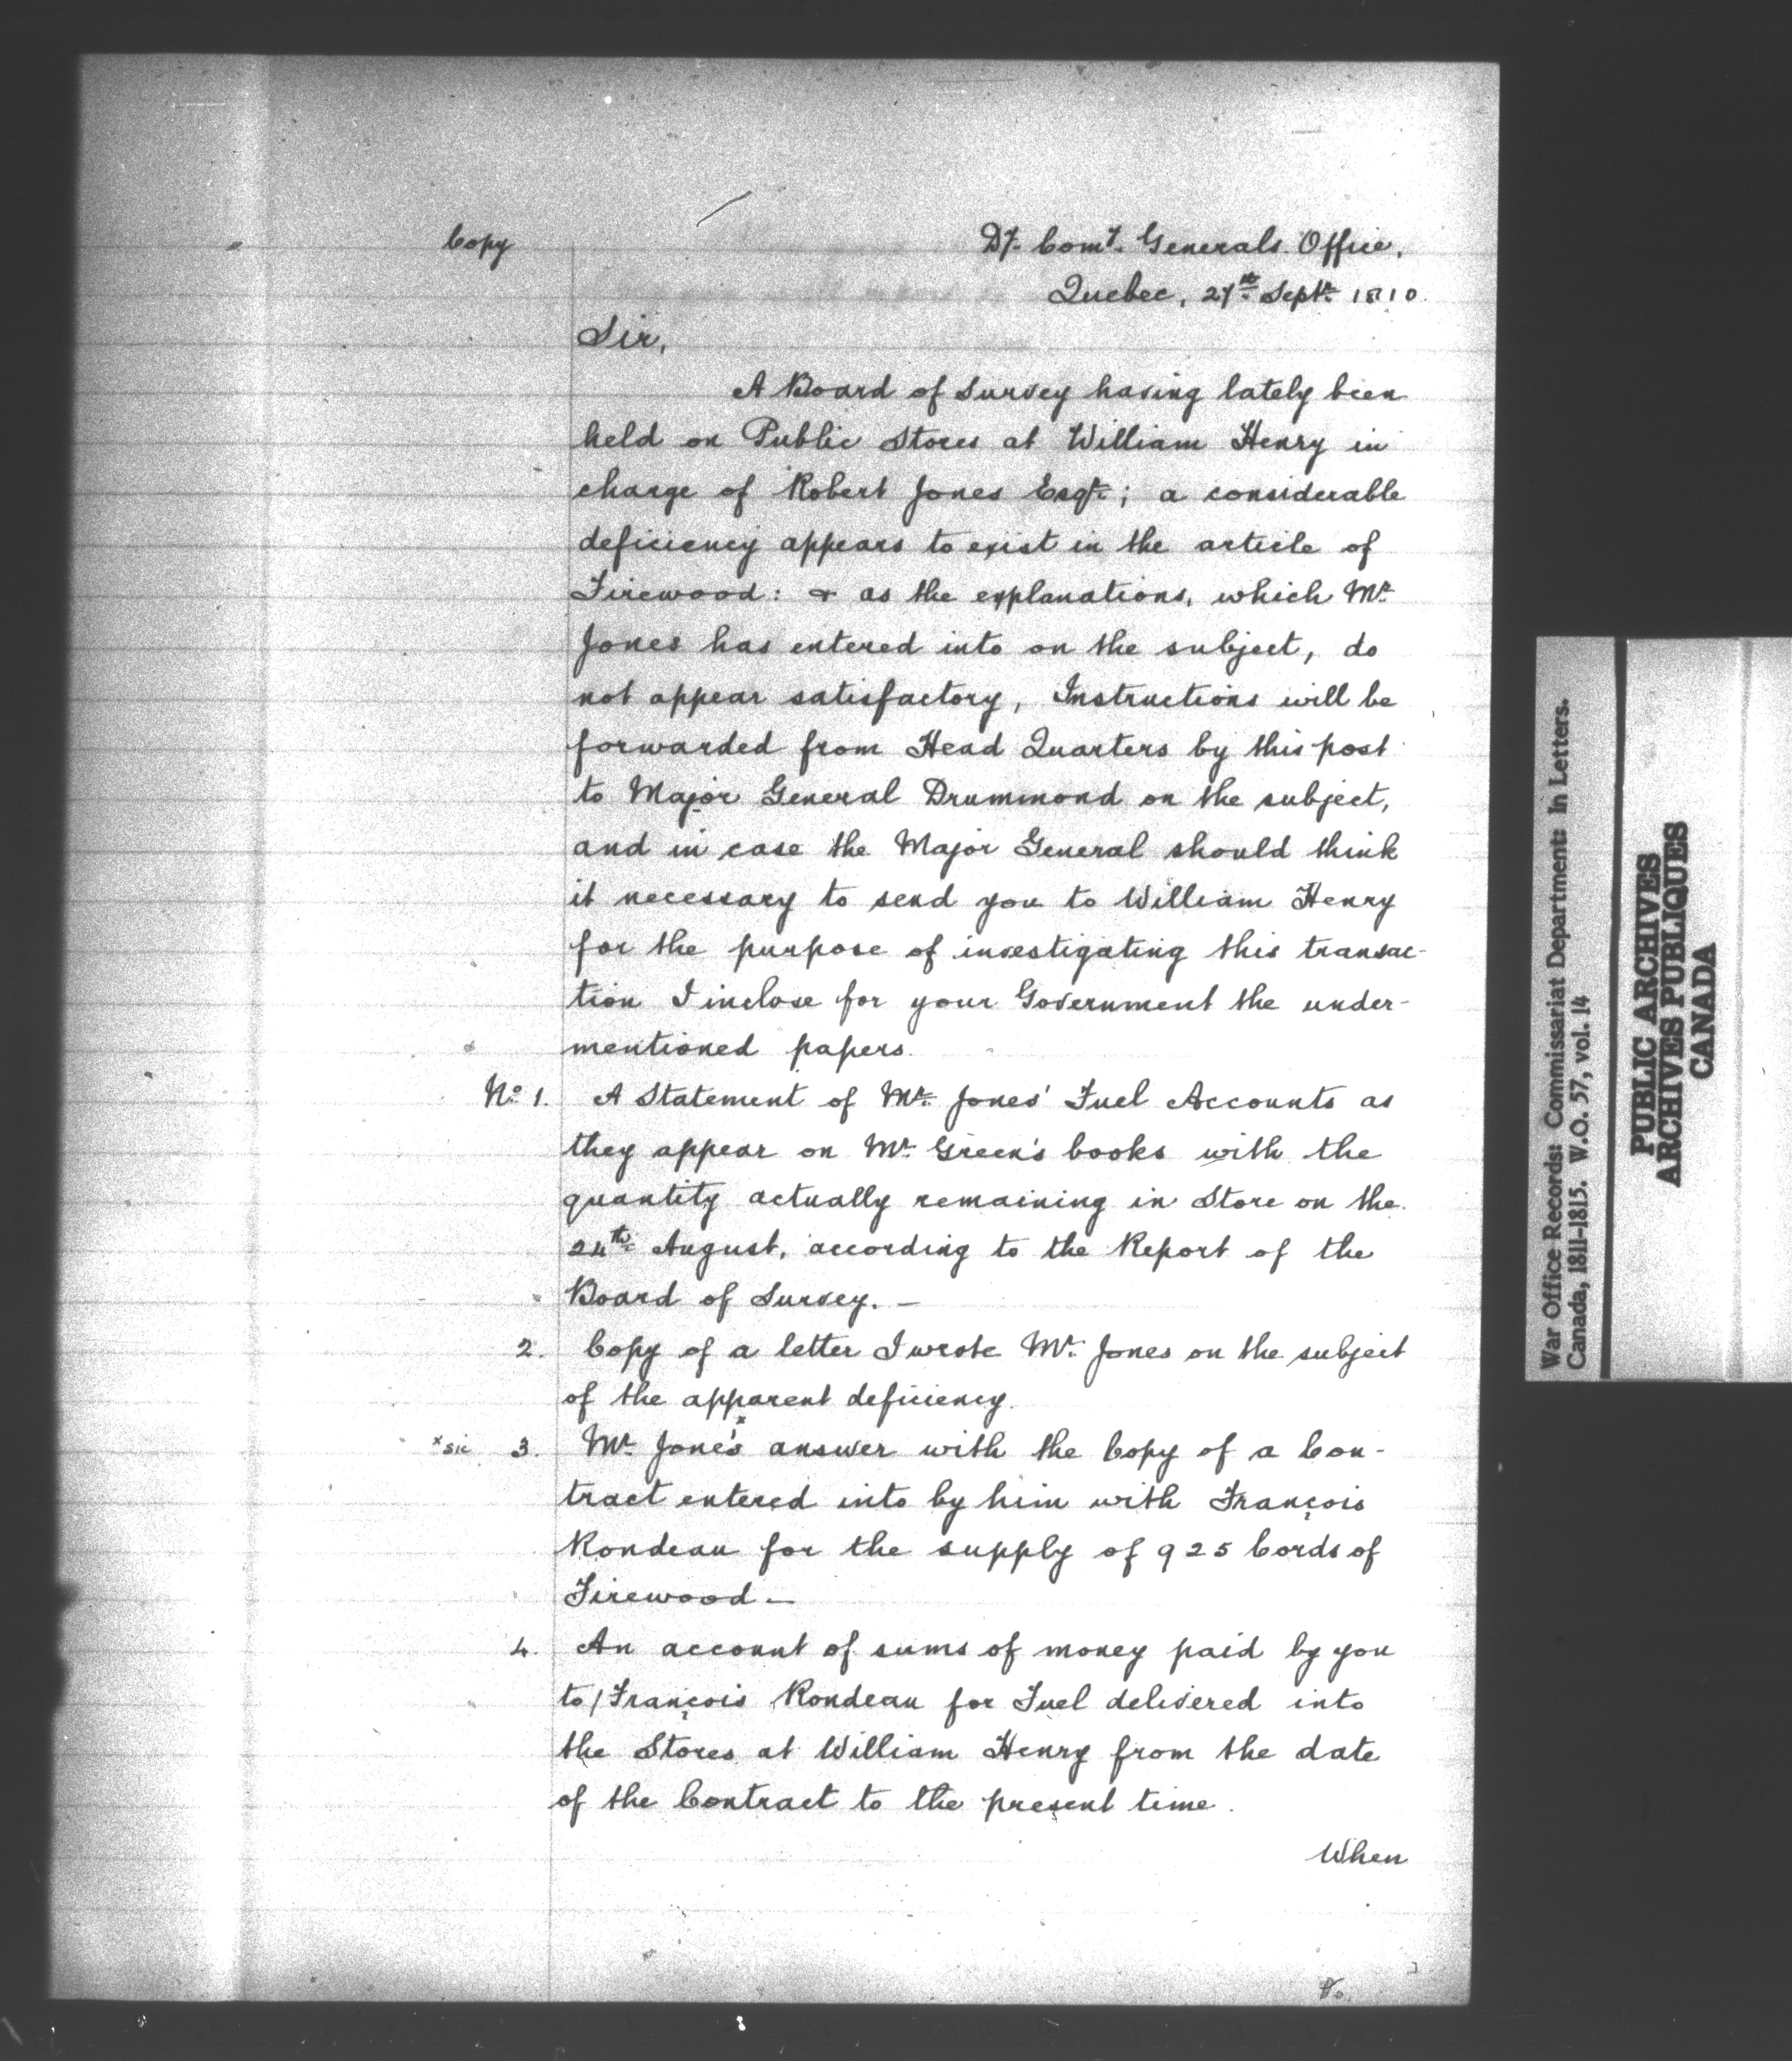 Copy
Dy. Comy. Generals Office,
Quebec, 27th Septr 1810.
Sir,
A Board of Survey having lately been
held on Public Stores at William Henry in
charge of Robert Jones Esqre; a considerable
deficiency appears to exist in the article of
Firewood: & as the explanations, which Mr
Jones has entered into on the subject, do
not appear satisfactory, Instructions will be
forwarded from Head Quarters by this post
to Major General Drummond on the subject,
and in case the Major General should think
it necessary to send you to William Henry
for the purpose of investigating this transac-
tion I inclose for your Government the under-
mentioned papers.
No 1. A Statement of Mr. Jones' Fuel Accounts as
they appear on Mr. Green's books with the
quantity actually remaining in Store on the
24th August, according to the Report of the
Board of Survey. –
2. Copy of a letter I wrote Mr. Jones on the subject
of the apparent deficiency.
x sic 3. Mr. Jone's x answer with the Copy of a Con-
tract entered into by him with François
Rondeau for the supply of 925 Cords of
Firewood –
4. An account of sums of money paid by you
to François Rondeau for Fuel delivered into
the Stores at William Henry from the date
of the Contract to the present time.
When
War Office Records: Commissariat Department: In Letters.
Canada, 1811-1815. W.O. 57, vol. 14
PUBLIC ARCHIVES
ARCHIVES PUBLIQUES
CANADA